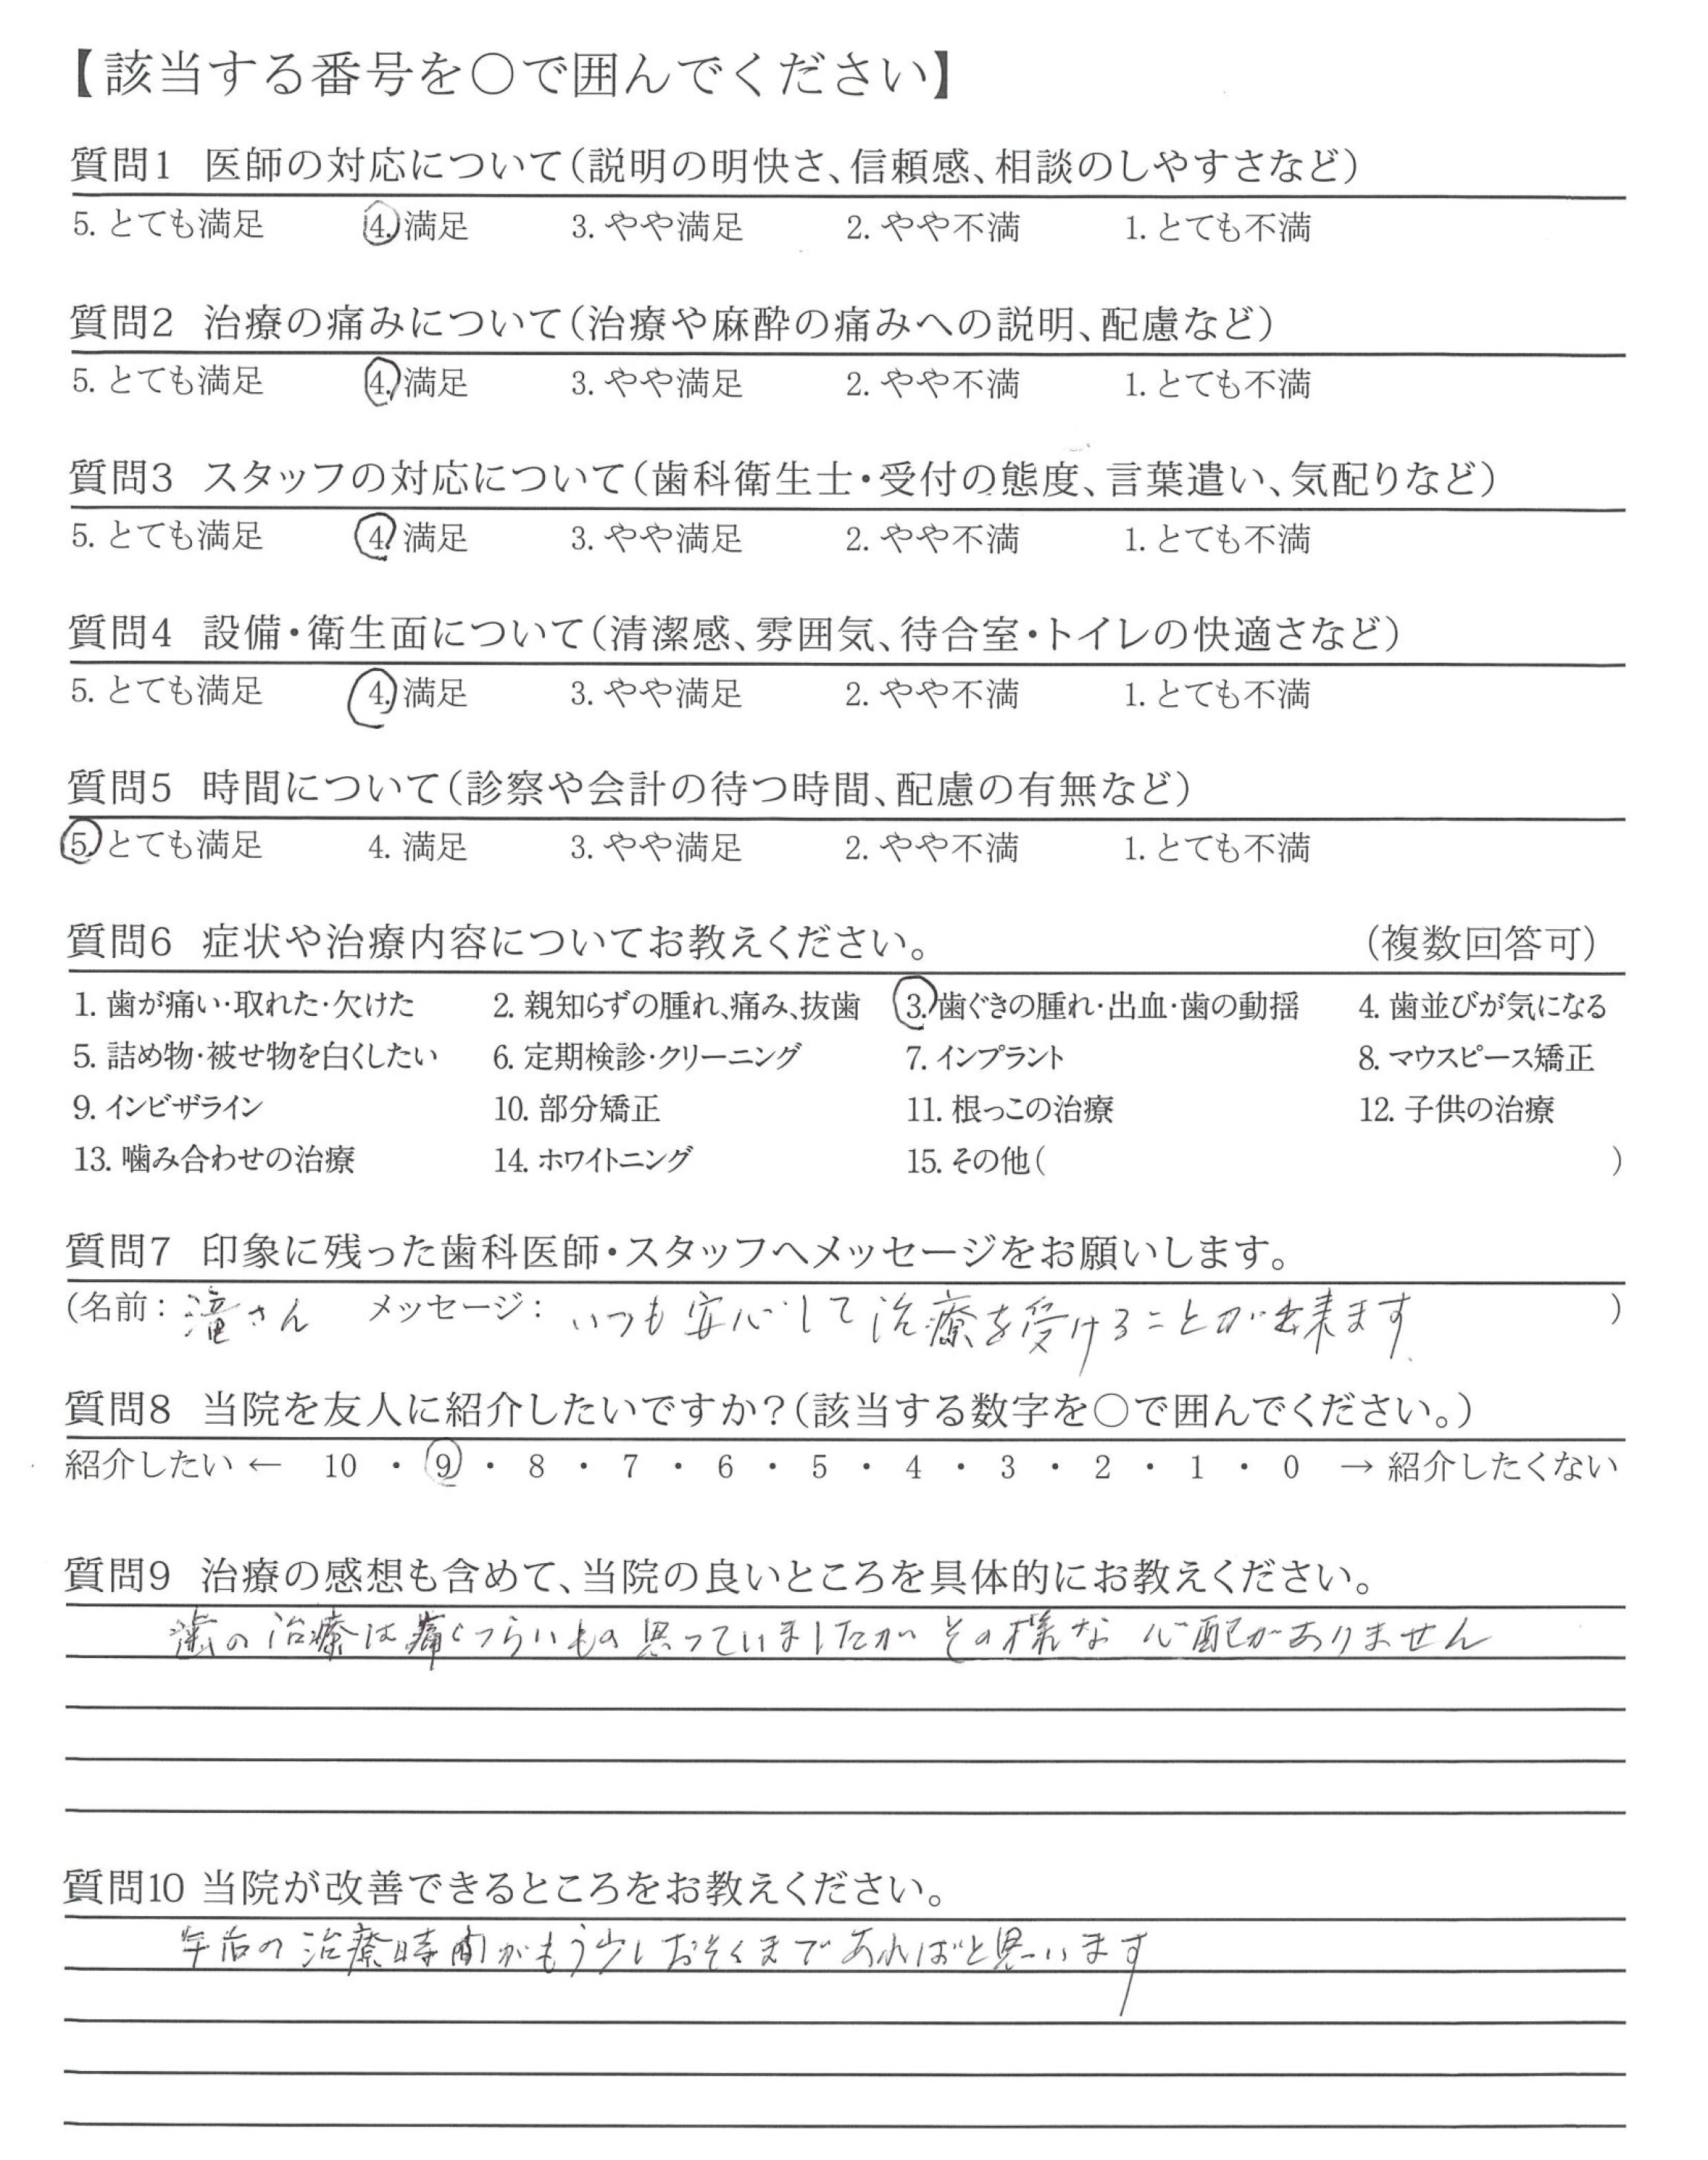 【該当する番号を○で囲んでください】
質問1 医師の対応について(説明の明快さ、信頼感、相談のしやすさなど)
5. とても満足 4. 満足 3. やや満足 2. やや不満 1. とても不満
質問2 治療の痛みについて(治療や麻酔の痛みへの説明、配慮など)
5. とても満足 4. 満足 3. やや満足 2. やや不満 1. とても不満
質問3 スタッフの対応について(歯科衛生士・受付の態度、言葉遣い、気配りなど)
5. とても満足 4. 満足 3. やや満足 2. やや不満 1. とても不満
質問4 設備・衛生面について(清潔感、雰囲気、待合室・トイレの快適さなど)
5. とても満足 4. 満足 3. やや満足 2. やや不満 1. とても不満
質問5 時間について(診察や会計の待つ時間、配慮の有無など)
5. とても満足 4. 満足 3. やや満足 2. やや不満 1. とても不満
質問6 症状や治療内容についてお教えください。 (複数回答可)
1. 歯が痛い・取れた・欠けた 2. 親知らずの腫れ、痛み、抜歯 3. 歯ぐきの腫れ・出血・歯の動揺 4. 歯並びが気になる
5. 詰め物・被せ物を白くしたい 6. 定期検診・クリーニング 7. インプラント 8. マウスピース矯正
9. インビザライン 10. 部分矯正 11. 根っこの治療 12. 子供の治療
13. 噛み合わせの治療 14. ホワイトニング 15. その他( )
質問7 印象に残った歯科医師・スタッフへメッセージをお願いします。
(名前: 滝さん メッセージ: いつも安心して治療を受けることが出来ます )
質問8 当院を友人に紹介したいですか?(該当する数字を○で囲んでください。)
紹介したい ← 10 ・ 9 ・ 8 ・ 7 ・ 6 ・ 5 ・ 4 ・ 3 ・ 2 ・ 1 ・ 0 → 紹介したくない
質問9 治療の感想も含めて、当院の良いところを具体的にお教えください。
歯の治療は痛くつらいもの思っていましたがその様な心配がありません
質問10 当院が改善できるところをお教えください。
の治療時間がもう少しおそくまであればと思います